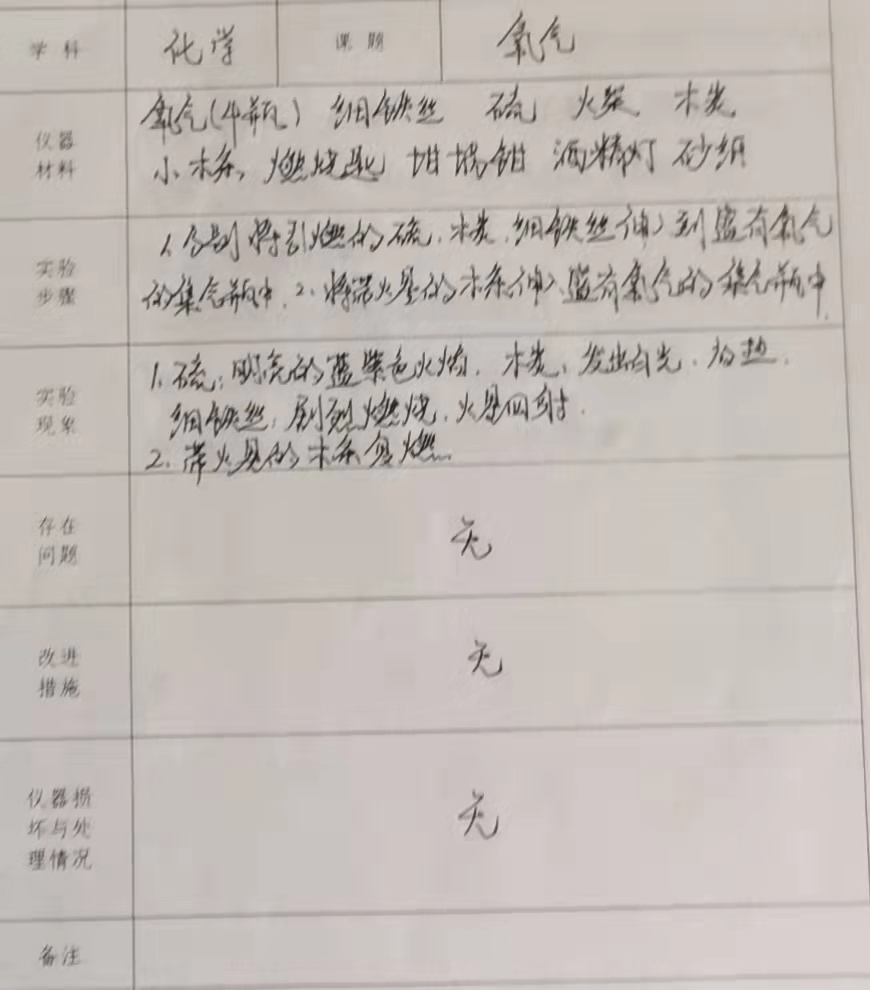 学科 化学 课题 氧气
仪器
材料
氧气(4瓶) 细铁丝 硫 火柴 木炭
小木条, 燃烧匙 坩埚钳 酒精灯 砂纸
实验
步骤
1.分别将引燃的硫、木炭、细铁丝伸入到盛有氧气
的集气瓶中. 2.将带火星的木条伸入盛有氧气的集气瓶中.
实验
现象
1.硫:明亮的蓝紫色火焰. 木炭:发出白光.放热.
细铁丝:剧烈燃烧.火星四射.
2.带火星的木条复燃.
存在
问题
无
改进
措施
无
仪器损
坏与处
理情况
无
备注